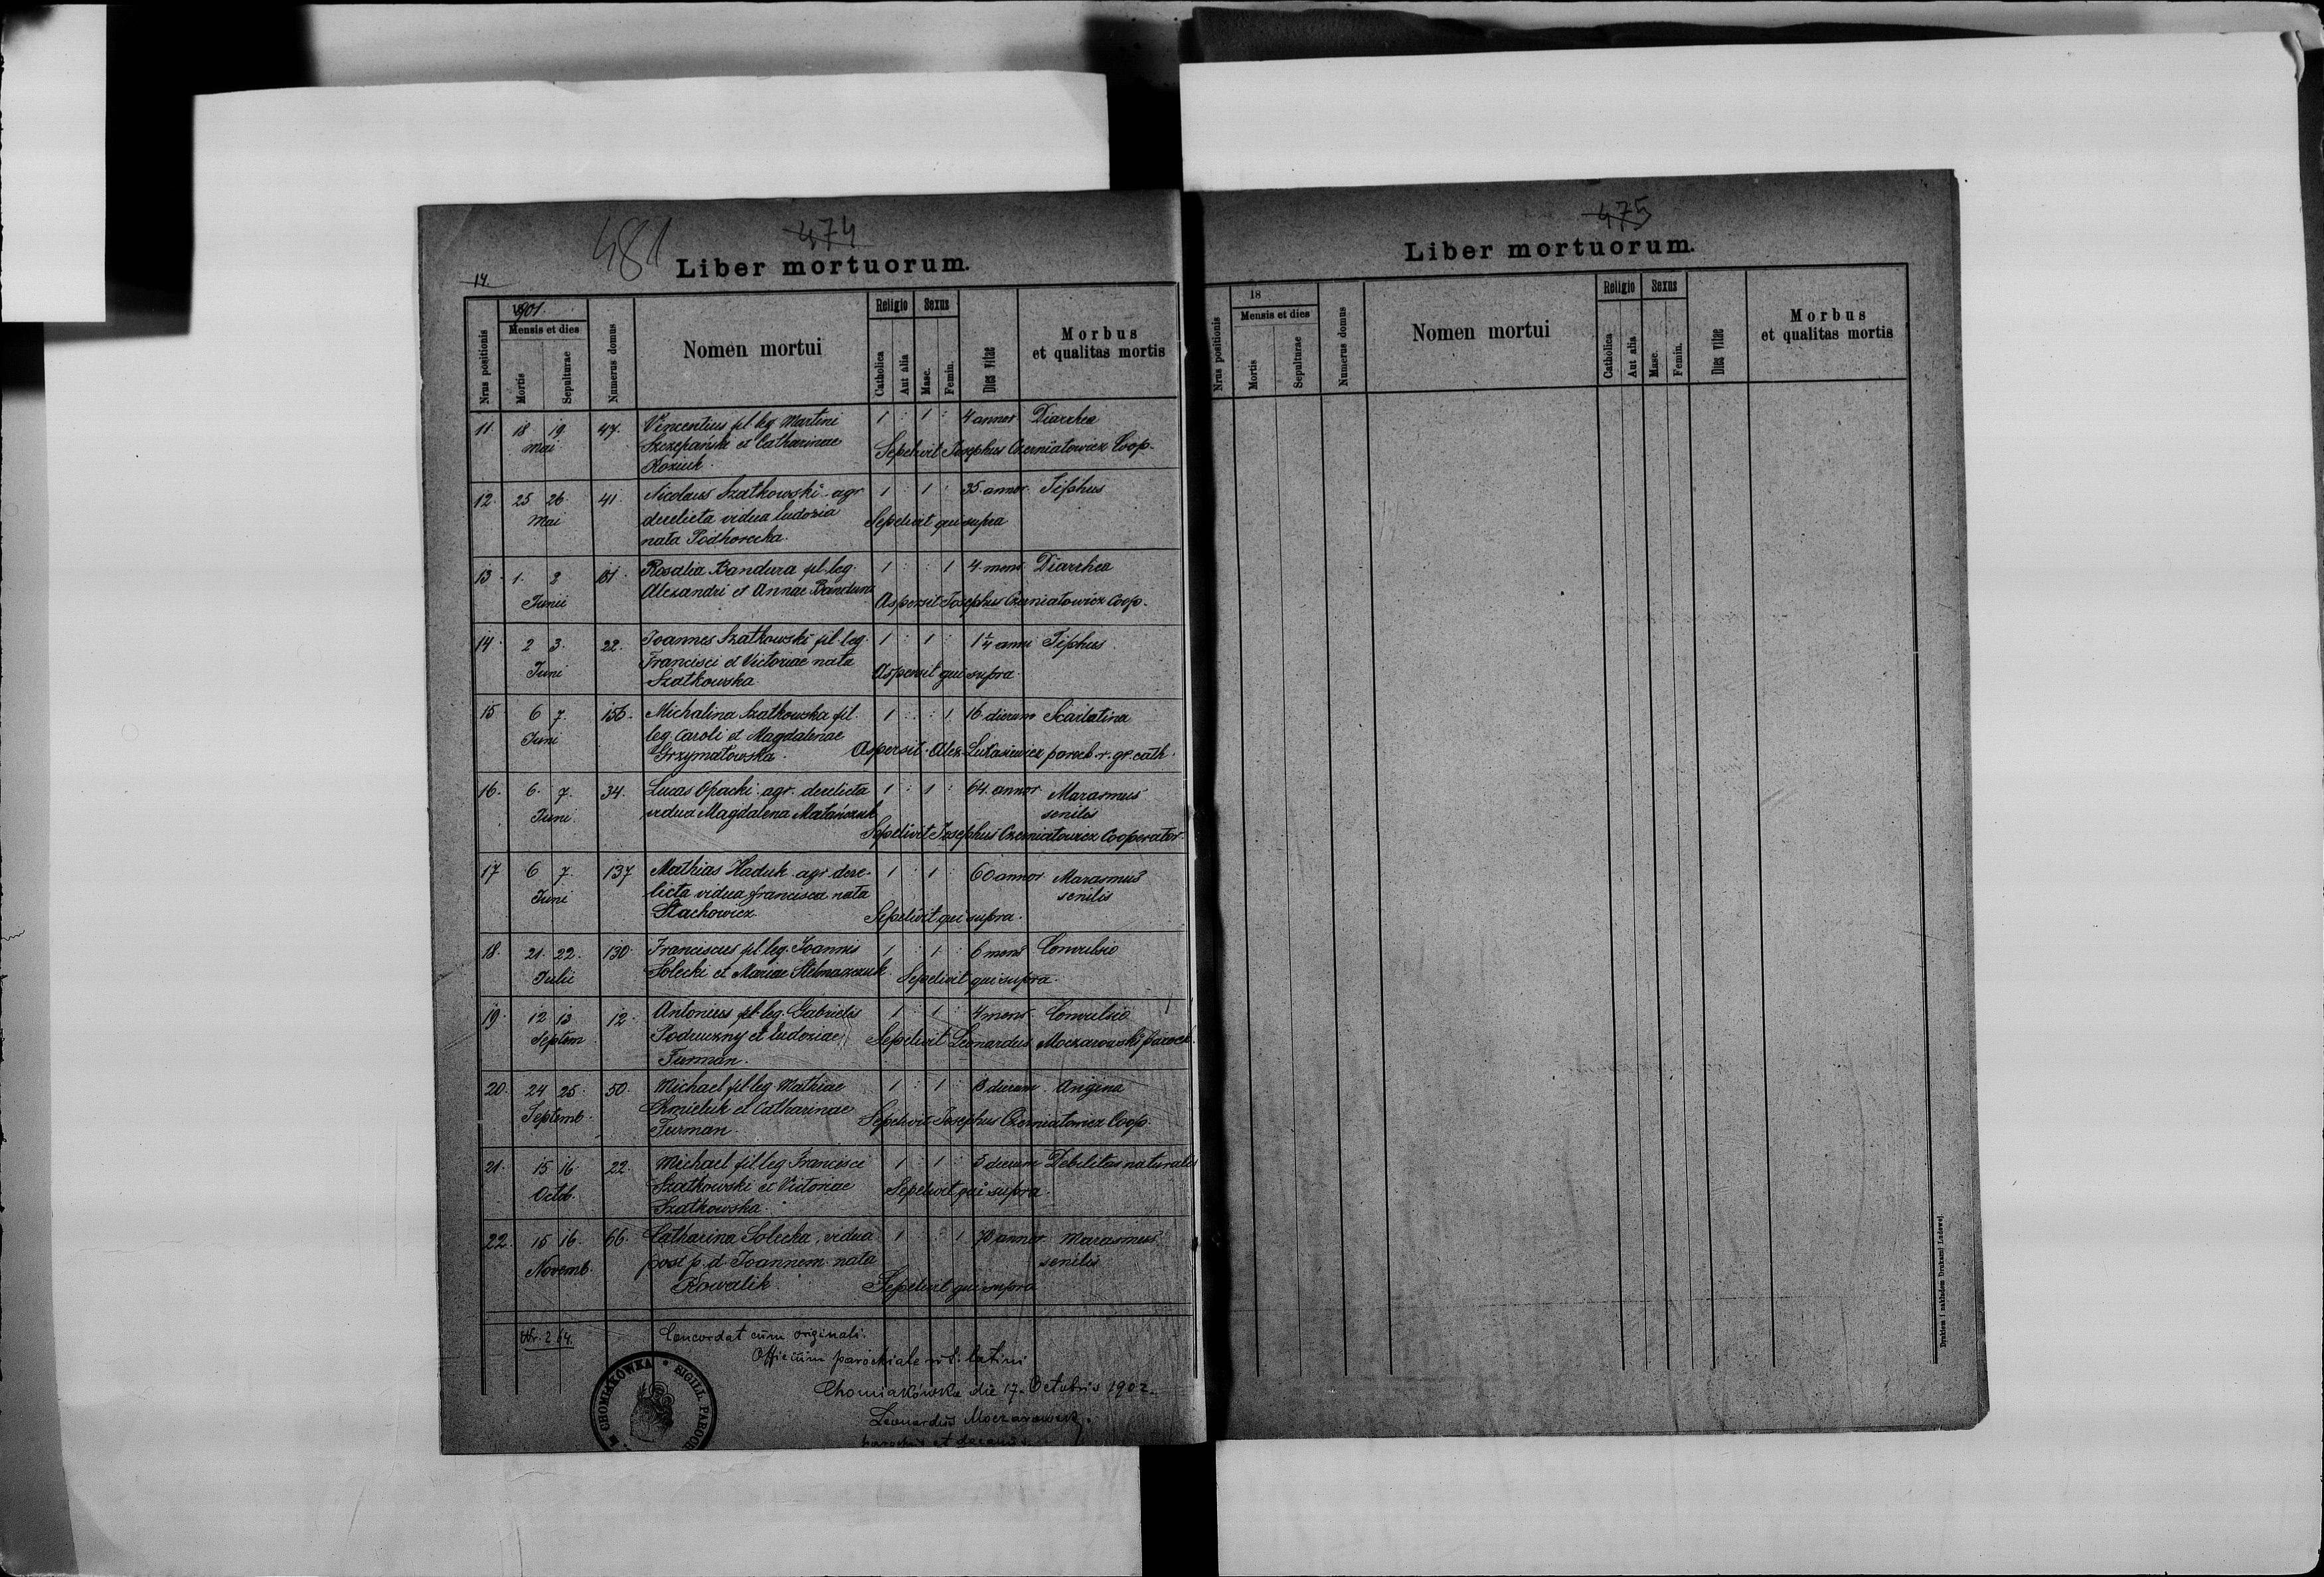 481
474
Liber mortuorum.
14
1901.
Nrus positionis
Mensis et dies
Mortis
Sepulturae
Numerus domus
Nomen mortui
Religio
Catholica
Aut alia
Sexus
Masc.
Femin.
Dies vitae
Morbus
et qualitas mortis
11. 18 19 47. Vincentius fil. leg. Martini 1 : 1 : 4 annor Diarrhea
Mai Szczepański et Catharinae Sepelivit Josephus Czerniatowicz Coop.
Koziuk.
12. 25 26 41. Nicolaus Szatkowski agr 1 : 1 : 35 annor. Tiphus
Mai derelicta vidua Eudoxia Sepelivit qui supra
nata Podhorecka.
13. 1. 2 Rosalia Bandura fil. leg. 1 : : 1 4 mens Diarrhea
Junii Alexandri et Annae Bandura Aspersit Josephus Czerniatowicz Coop.
14. 2 3. 22. Joannes Szatkowski fil. leg. 1 : 1 : 1 1/4 anni Tiphus.
Juni Francisci et Victoriae nata Aspersit qui supra.
Szatkowska.
15 6 7. 156. Michalina Szatkowska fil. 1 : : 1 16 dierum Scarlatina
Juni leg. Caroli et Magdalenae
Grzymałowska. Aspersit. Alex. Łukasiewicz paroch. r. gr. cath.
16. 6. 7. 34. Lucas Opacki agr. derelicta 1 : 1 : 64. annor. Marasmus
Juni. vidua Magdalena Matańczuk senilis
Sepelivit Josephus Czerniatowicz Cooperator.
17 6 7. 137 Mathias Haduk agr. dere- 1 : 1 : 60 annor Marasmus
Juni licta vidua Francisca nata senilis
Stachowicz Sepelivit qui supra.
18. 21. 22. 130. Franciscus fil. leg. Joannis 1 : 1 : 6 mens Convulsio
Julii Solecki et Mariae Stelmaszczuk. Sepelivit qui supra.
19. 12 13 12. Antonius fil. leg. Gabrielis 1 : 1 : 4 mens Convulsio
Septem. Podruczny et Eudoxiae Sepelivit Leonardus Moczarowski paroch.
Furman.
20. 24 25. 50. Michael fil. leg. Mathiae 1 : 1 : 8 dierum Angina
Septemb. Chmieluk et Catharinae Sepelivit Josephus Czerniatowicz Coop.
Furman.
21. 15 16 22. Michael fil. leg. Francisci 1 : 1 : 5 dierum Debilitas naturalis
Octob. Szatkowski et Victoriae Sepelivit qui supra.
Szatkowska.
22. 15 16. 66. Catharina Solecka, vidua 1 : : 1 70 annor. Marasmus
Novemb. post p. d. Joannem nata senilis
Kowalik. Sepelivit qui supra
Nr. 264. Concordat cum originali.
Officium parochiale rit. latini
Chomiakówka die 17. Octobris 1902.
Leonardus Moczarowski.
parochus et decanus.
CHOMIAKÓWKA * SIGILL. PAROCH
475
Liber mortuorum.
18
Nrus positionis
Mensis et dies
Mortis
Sepulturae
Numerus domus
Nomen mortui
Religio
Catholica
Aut alia
Sexus
Masc.
Femin.
Dies vitae
Morbus
et qualitas mortis
Drukiem i nakładem Drukarni Ludowej.